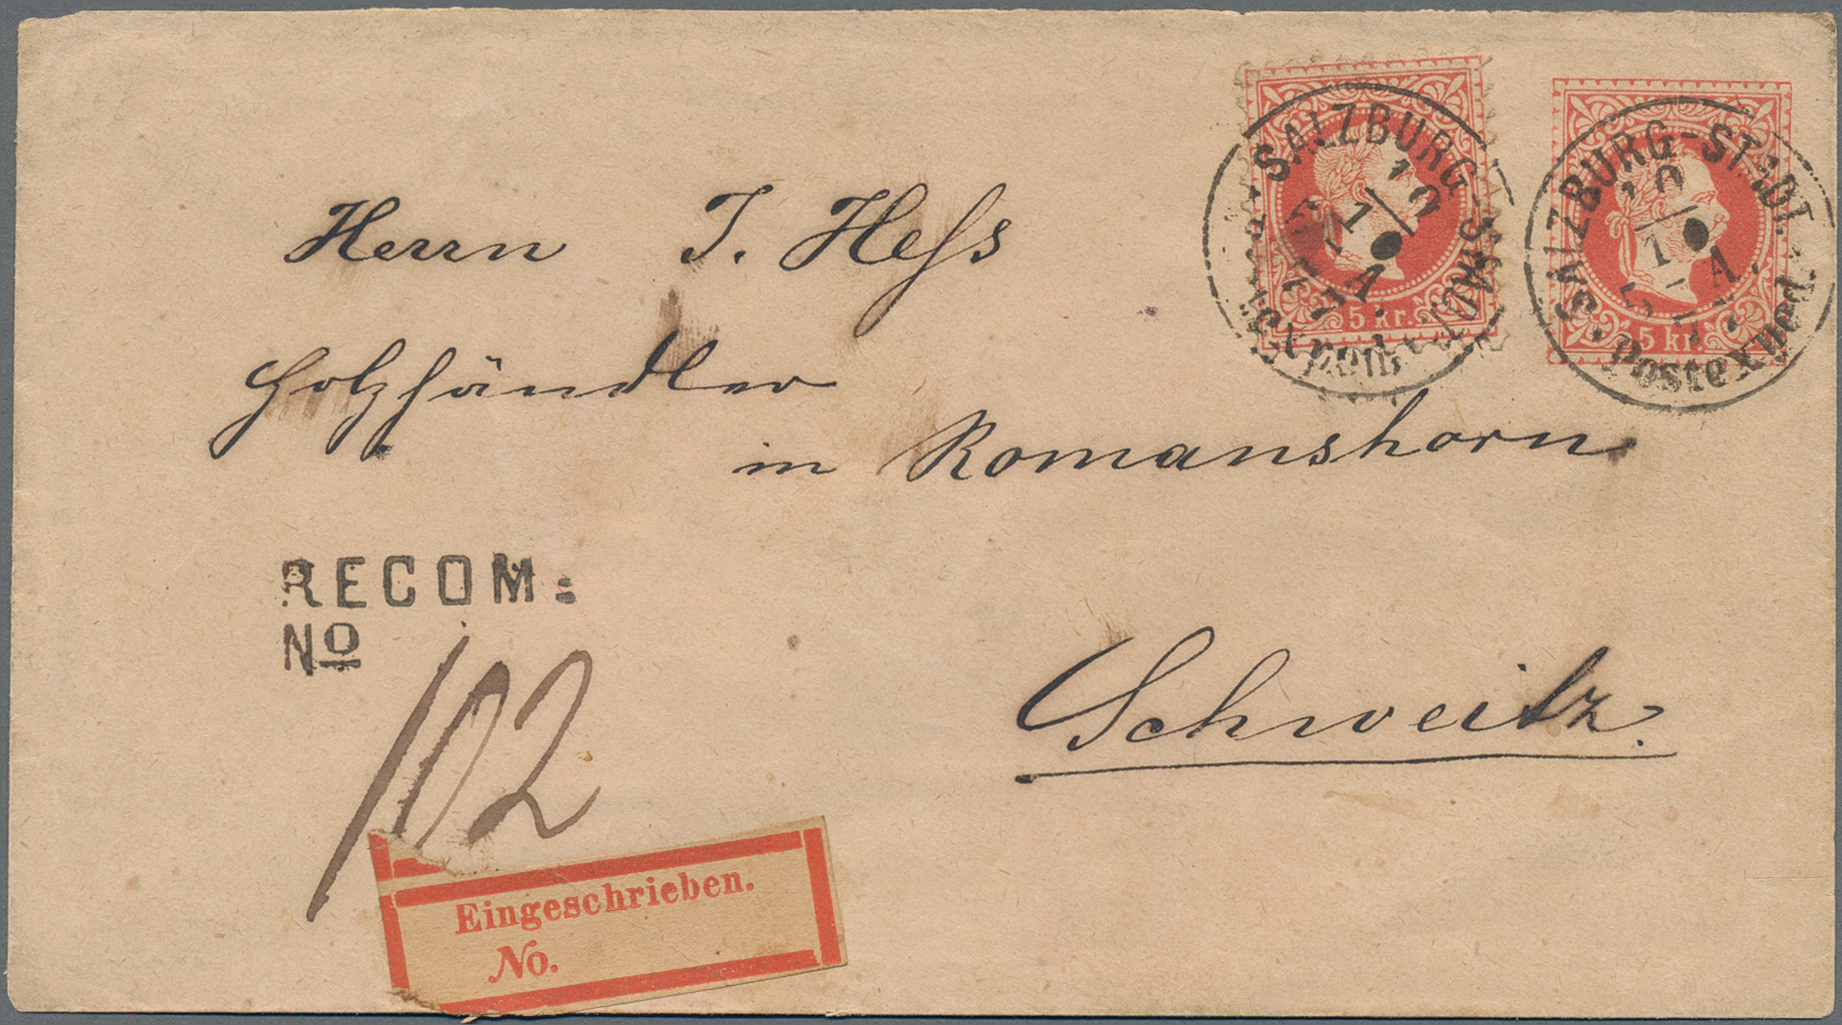 SALZBURG-STADT.
10/1
A.
5 kr.
Postexped.
SALZBURG-STADT.
10/1
A.
77
5 kr.
Postexped.
Herrn J. Heſs
Holzhändler
in Romanshorn
Schweitz.
RECOM:
No
102
Eingeschrieben.
No.